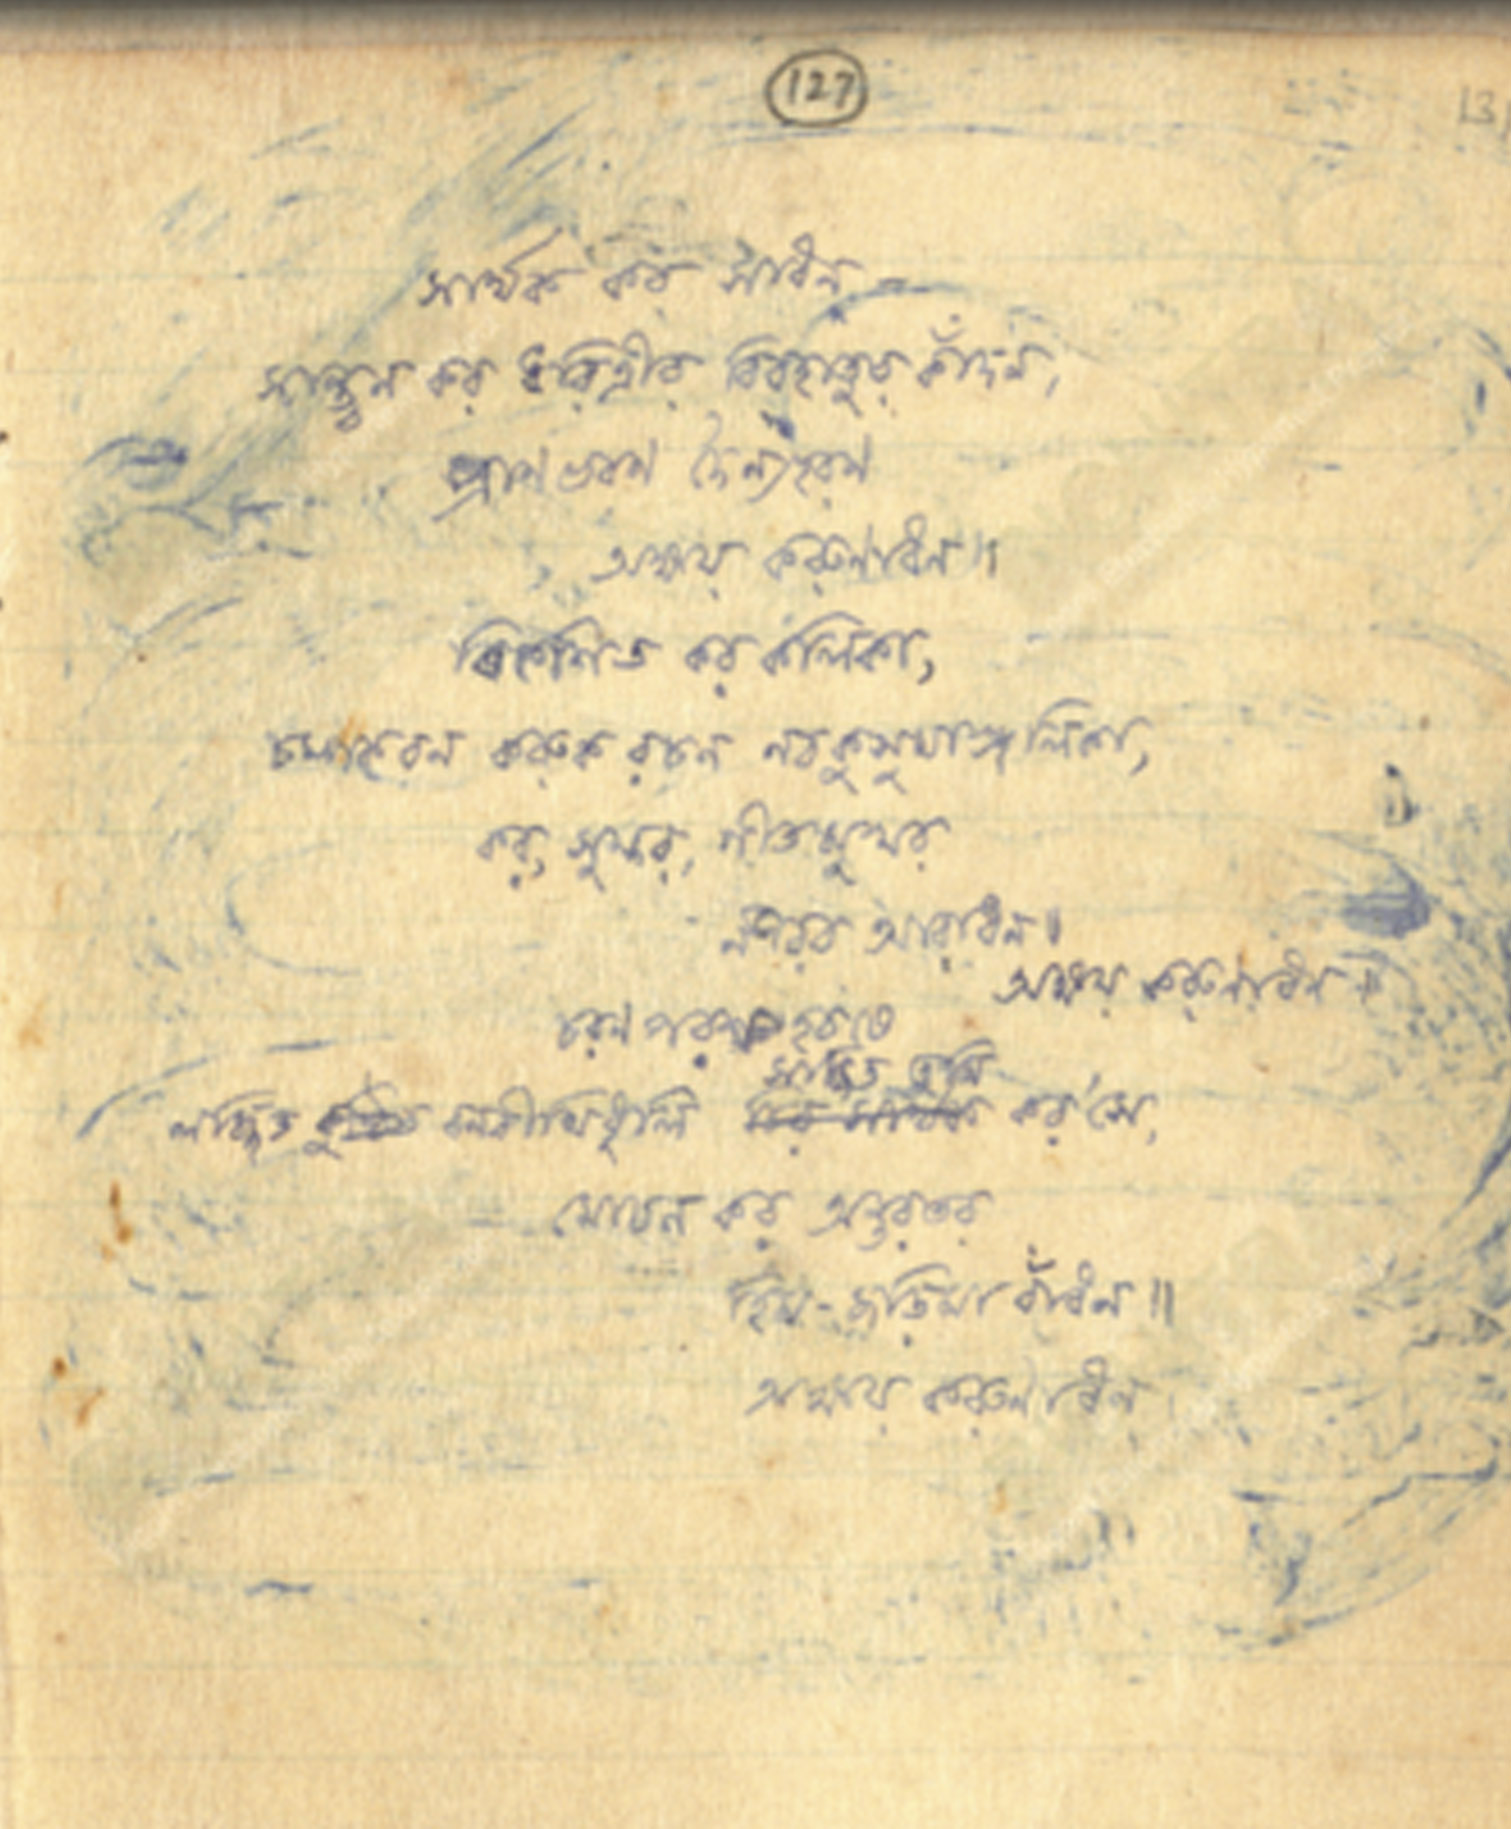 127
13
সার্থক কর সাধন –
সান্ত্বন কর ধরিত্রীর বিরহাতুর কাঁদন,
প্রাণভরণ দৈন্যহরণ
অক্ষয় করুণাধন॥
বিকশিত কর কলিকা,
চম্পকবন করুক রচন নবকুসুমাঞ্জলিকা,
কর, সুন্দর, গীতমুখর
নীরব আরাধন॥
অক্ষয় করুণাধন॥
চরণ পরশ হরষে
লজ্জিত বনবীথিধূলি সজ্জিত তুমি কর'সে,
মোচন কর অন্তরতর
হিম-জড়িমা বাঁধন॥
অক্ষয় করুণাধন